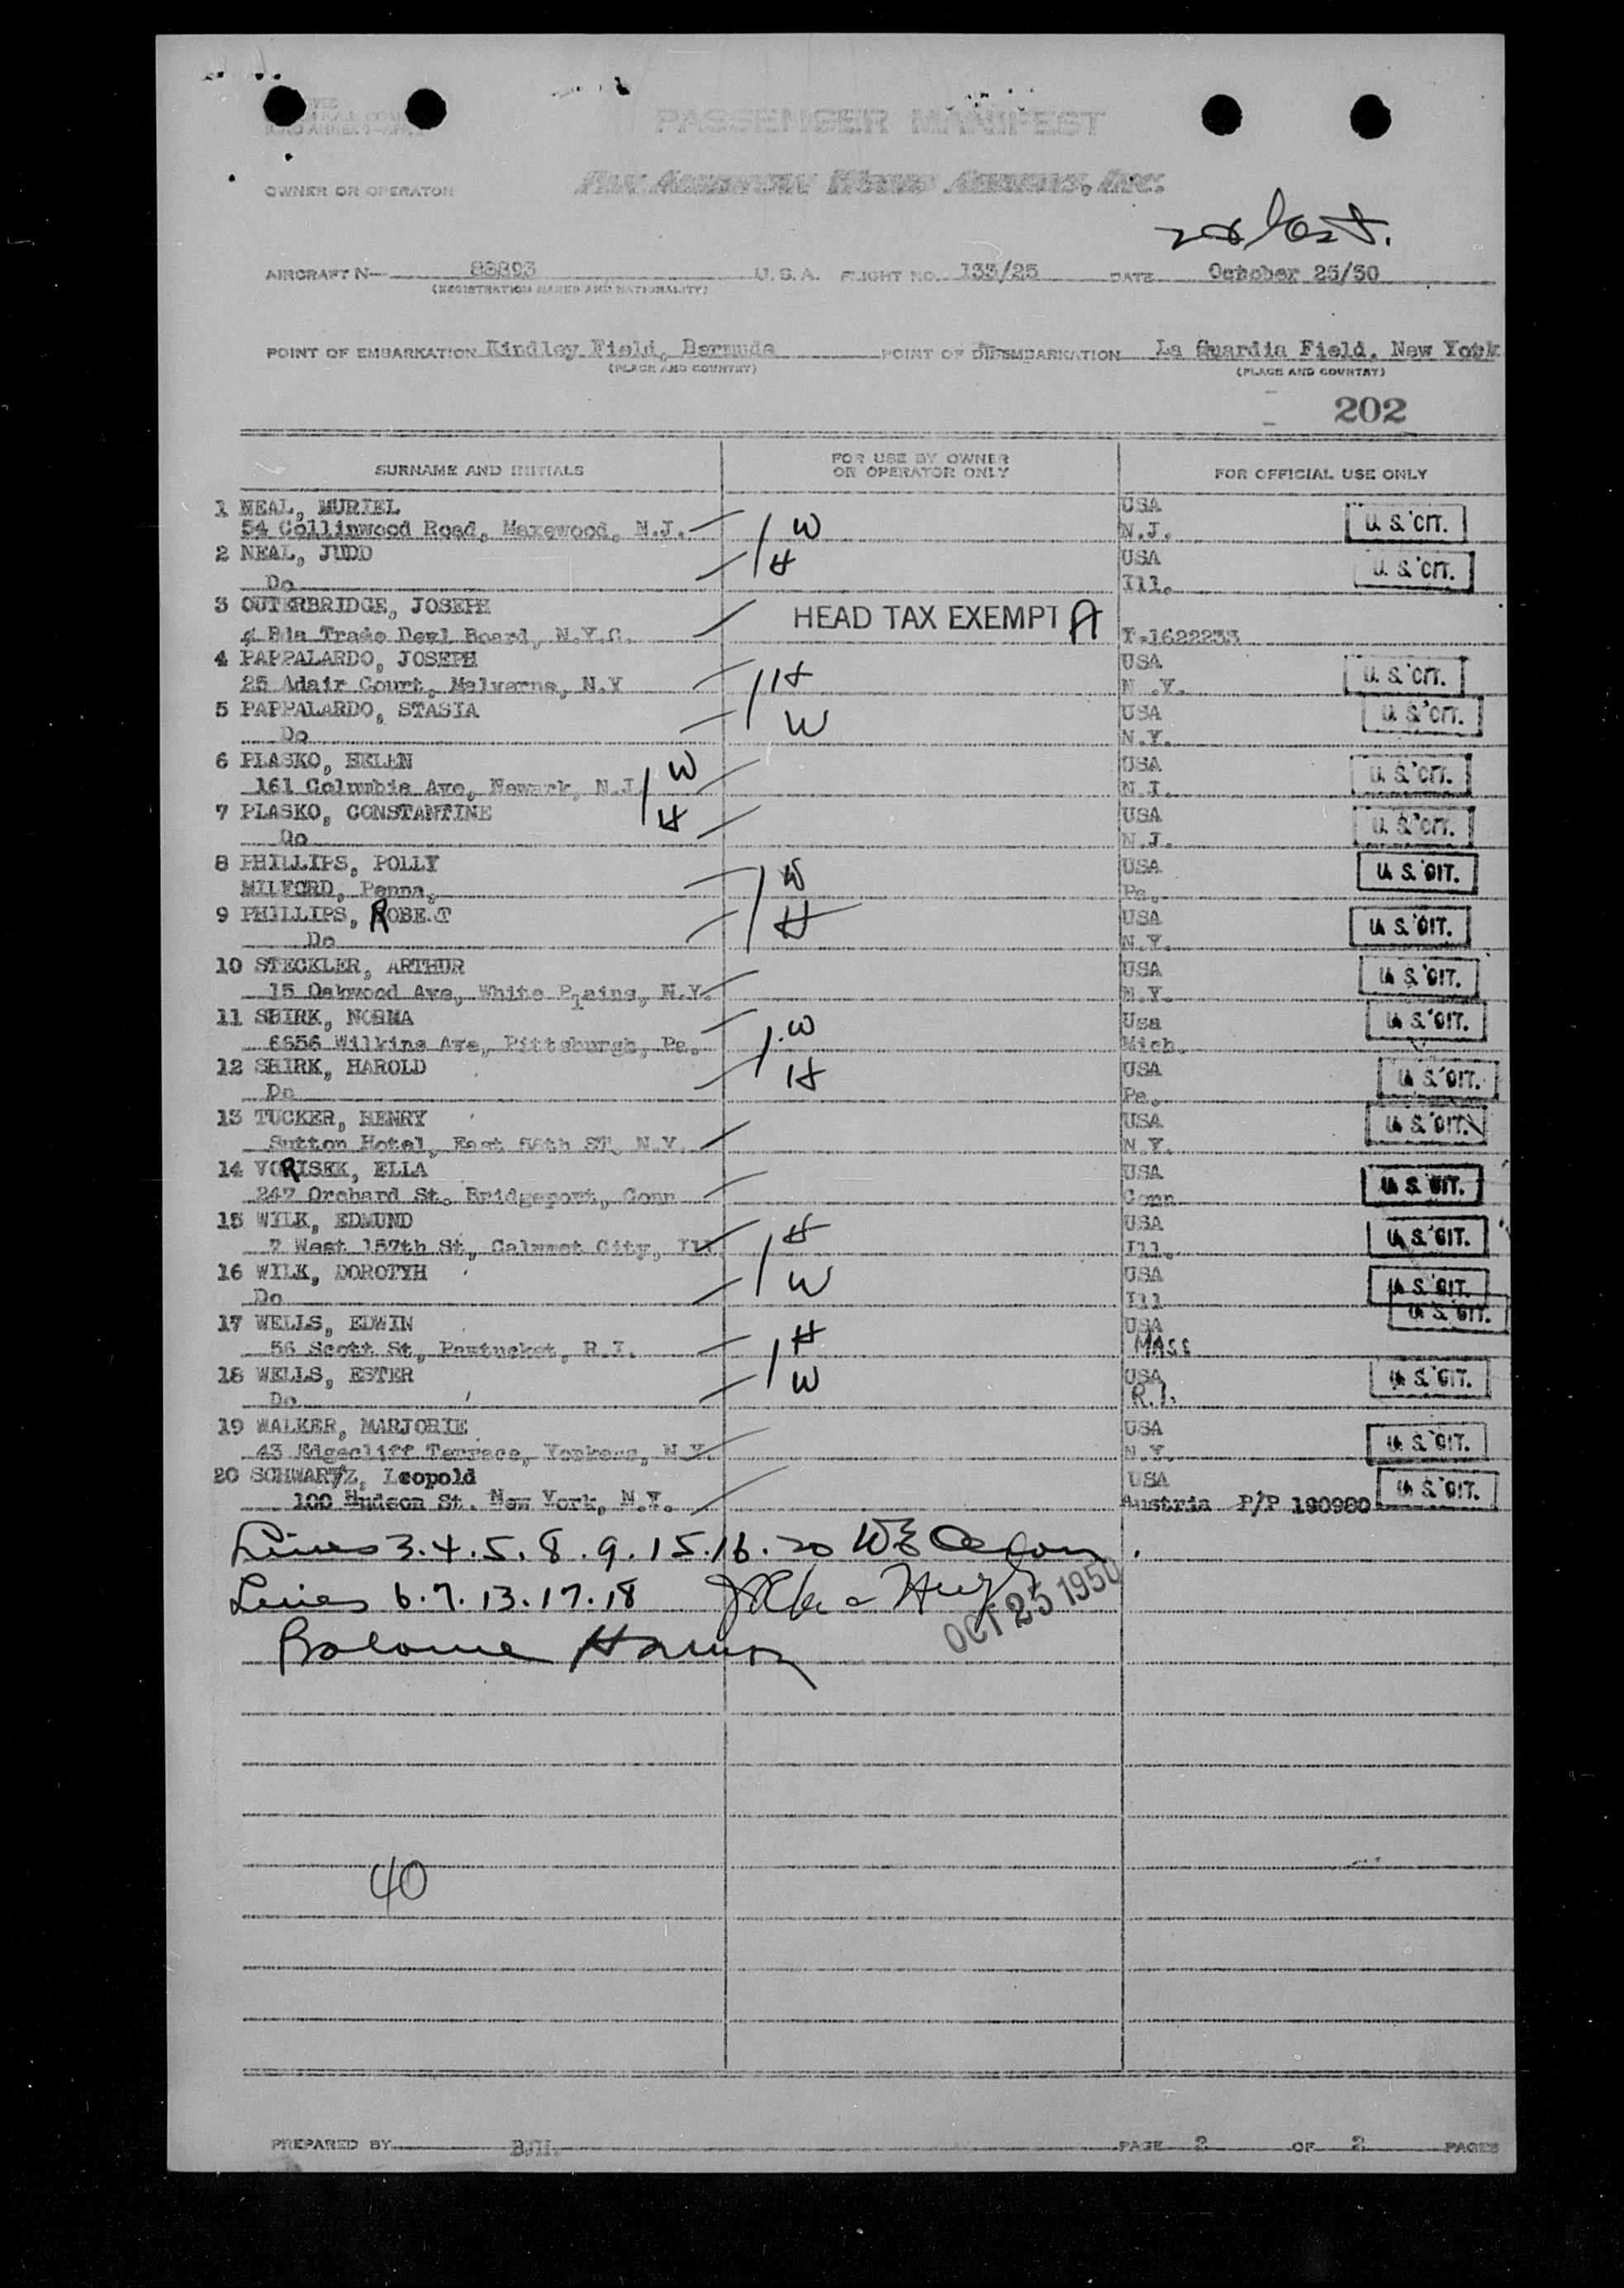 PASSENGER MANIFEST
OWNER OR OPERATOR Pan American World Airways, Inc.
AIRCRAFT N— 88893 U.S.A. FLIGHT NO. 133/25 DATE October 25/50
(REGISTRATION MARKS AND NATIONALITY)
POINT OF EMBARKATION Kindley Field, Bermuda POINT OF DISEMBARKATION La Guardia Field, New York
(PLACE AND COUNTRY) (PLACE AND COUNTRY)
202
SURNAME AND INITIALS FOR USE BY OWNER OR OPERATOR ONLY FOR OFFICIAL USE ONLY
1 NEAL, MURIEL USA
54 Collinwood Road, Maxewood, N.J. W N.J. U.S. CIT.
2 NEAL, JUDD H USA U.S. CIT.
Do Ill.
3 OUTERBRIDGE, JOSEPH HEAD TAX EXEMPT A
Bda Trade Devl Board, N.Y.C. T-1622233
4 PAPPALARDO, JOSEPH H USA U.S. CIT.
25 Adair Court, Malverne, N.Y N.Y.
5 PAPPALARDO, STASIA W USA U.S. CIT.
Do N.Y.
6 PLASKO, HELEN W USA U.S. CIT.
161 Columbia Ave, Newark, N.J. N.J.
7 PLASKO, CONSTANTINE H USA U.S. CIT.
Do N.J.
8 PHILLIPS, POLLY W USA U.S. CIT.
MILFORD, Penna, Pa.
9 PHILLIPS, ROBERT H USA U.S. CIT.
Do N.Y.
10 STECKLER, ARTHUR USA U.S. CIT.
15 Oakwood Ave, White Plains, N.Y. N.Y.
11 SHIRK, NORMA W Usa U.S. CIT.
6656 Wilkins Ave, Pittsburgh, Pa. Mich.
12 SHIRK, HAROLD H USA U.S. CIT.
Do Pa.
13 TUCKER, HENRY USA U.S. CIT.
Sutton Hotel, East 56th ST, N.Y. N.Y.
14 VORISEK, ELLA USA U.S. CIT.
247 Orchard St. Bridgeport, Conn Conn
15 WILK, EDMUND H USA U.S. CIT.
7 West 157th St, Calumet City, Ill Ill.
16 WILK, DOROTYH W USA U.S. CIT.
Do Ill
17 WELLS, EDWIN H USA U.S. CIT.
56 Scott St, Pawtucket, R.I. MASS
18 WELLS, ESTER W USA U.S. CIT.
Do R.I.
19 WALKER, MARJORIE USA U.S. CIT.
43 Edgecliff Terrace, Yonkers, N.Y. N.Y.
20 SCHWARTZ, Leopold USA U.S. CIT.
100 Hudson St. New York, N.Y. Austria P/P 190980
Lines 3.4.5.8.9.15.16.20
Lines 6.7.13.17.18 OCT 25 1950
Balance
40
PREPARED BY BJH. PAGE 2 OF 2 PAGES